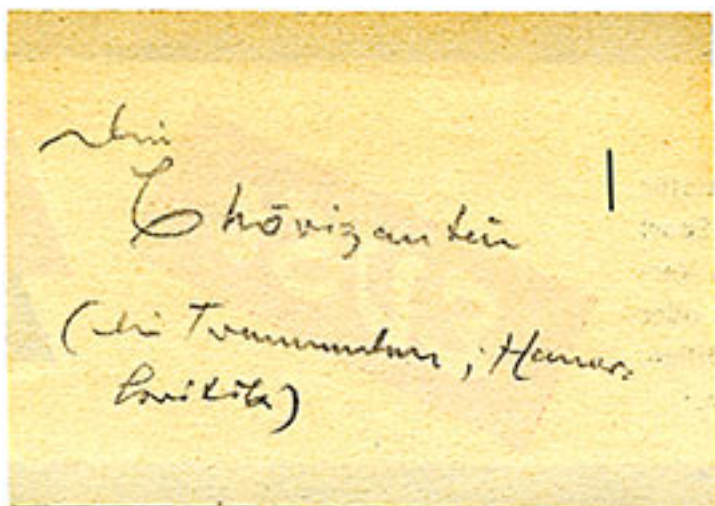 Die
Chōrizonten
(die Trennenden; Homer=
kritik)